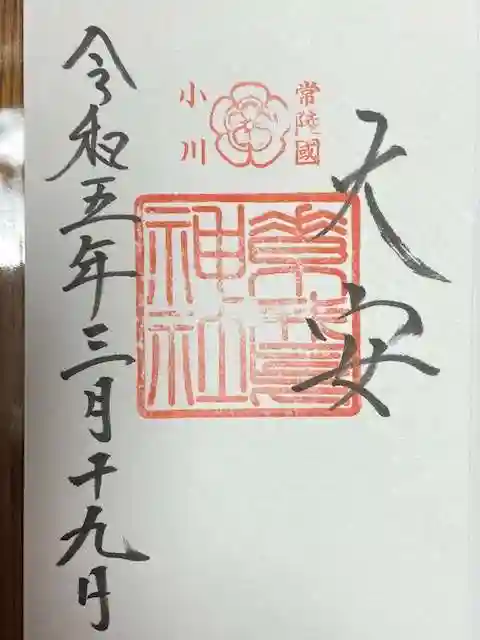 大安
常陸國
小川
素鵞
神社
令和五年三月十九日